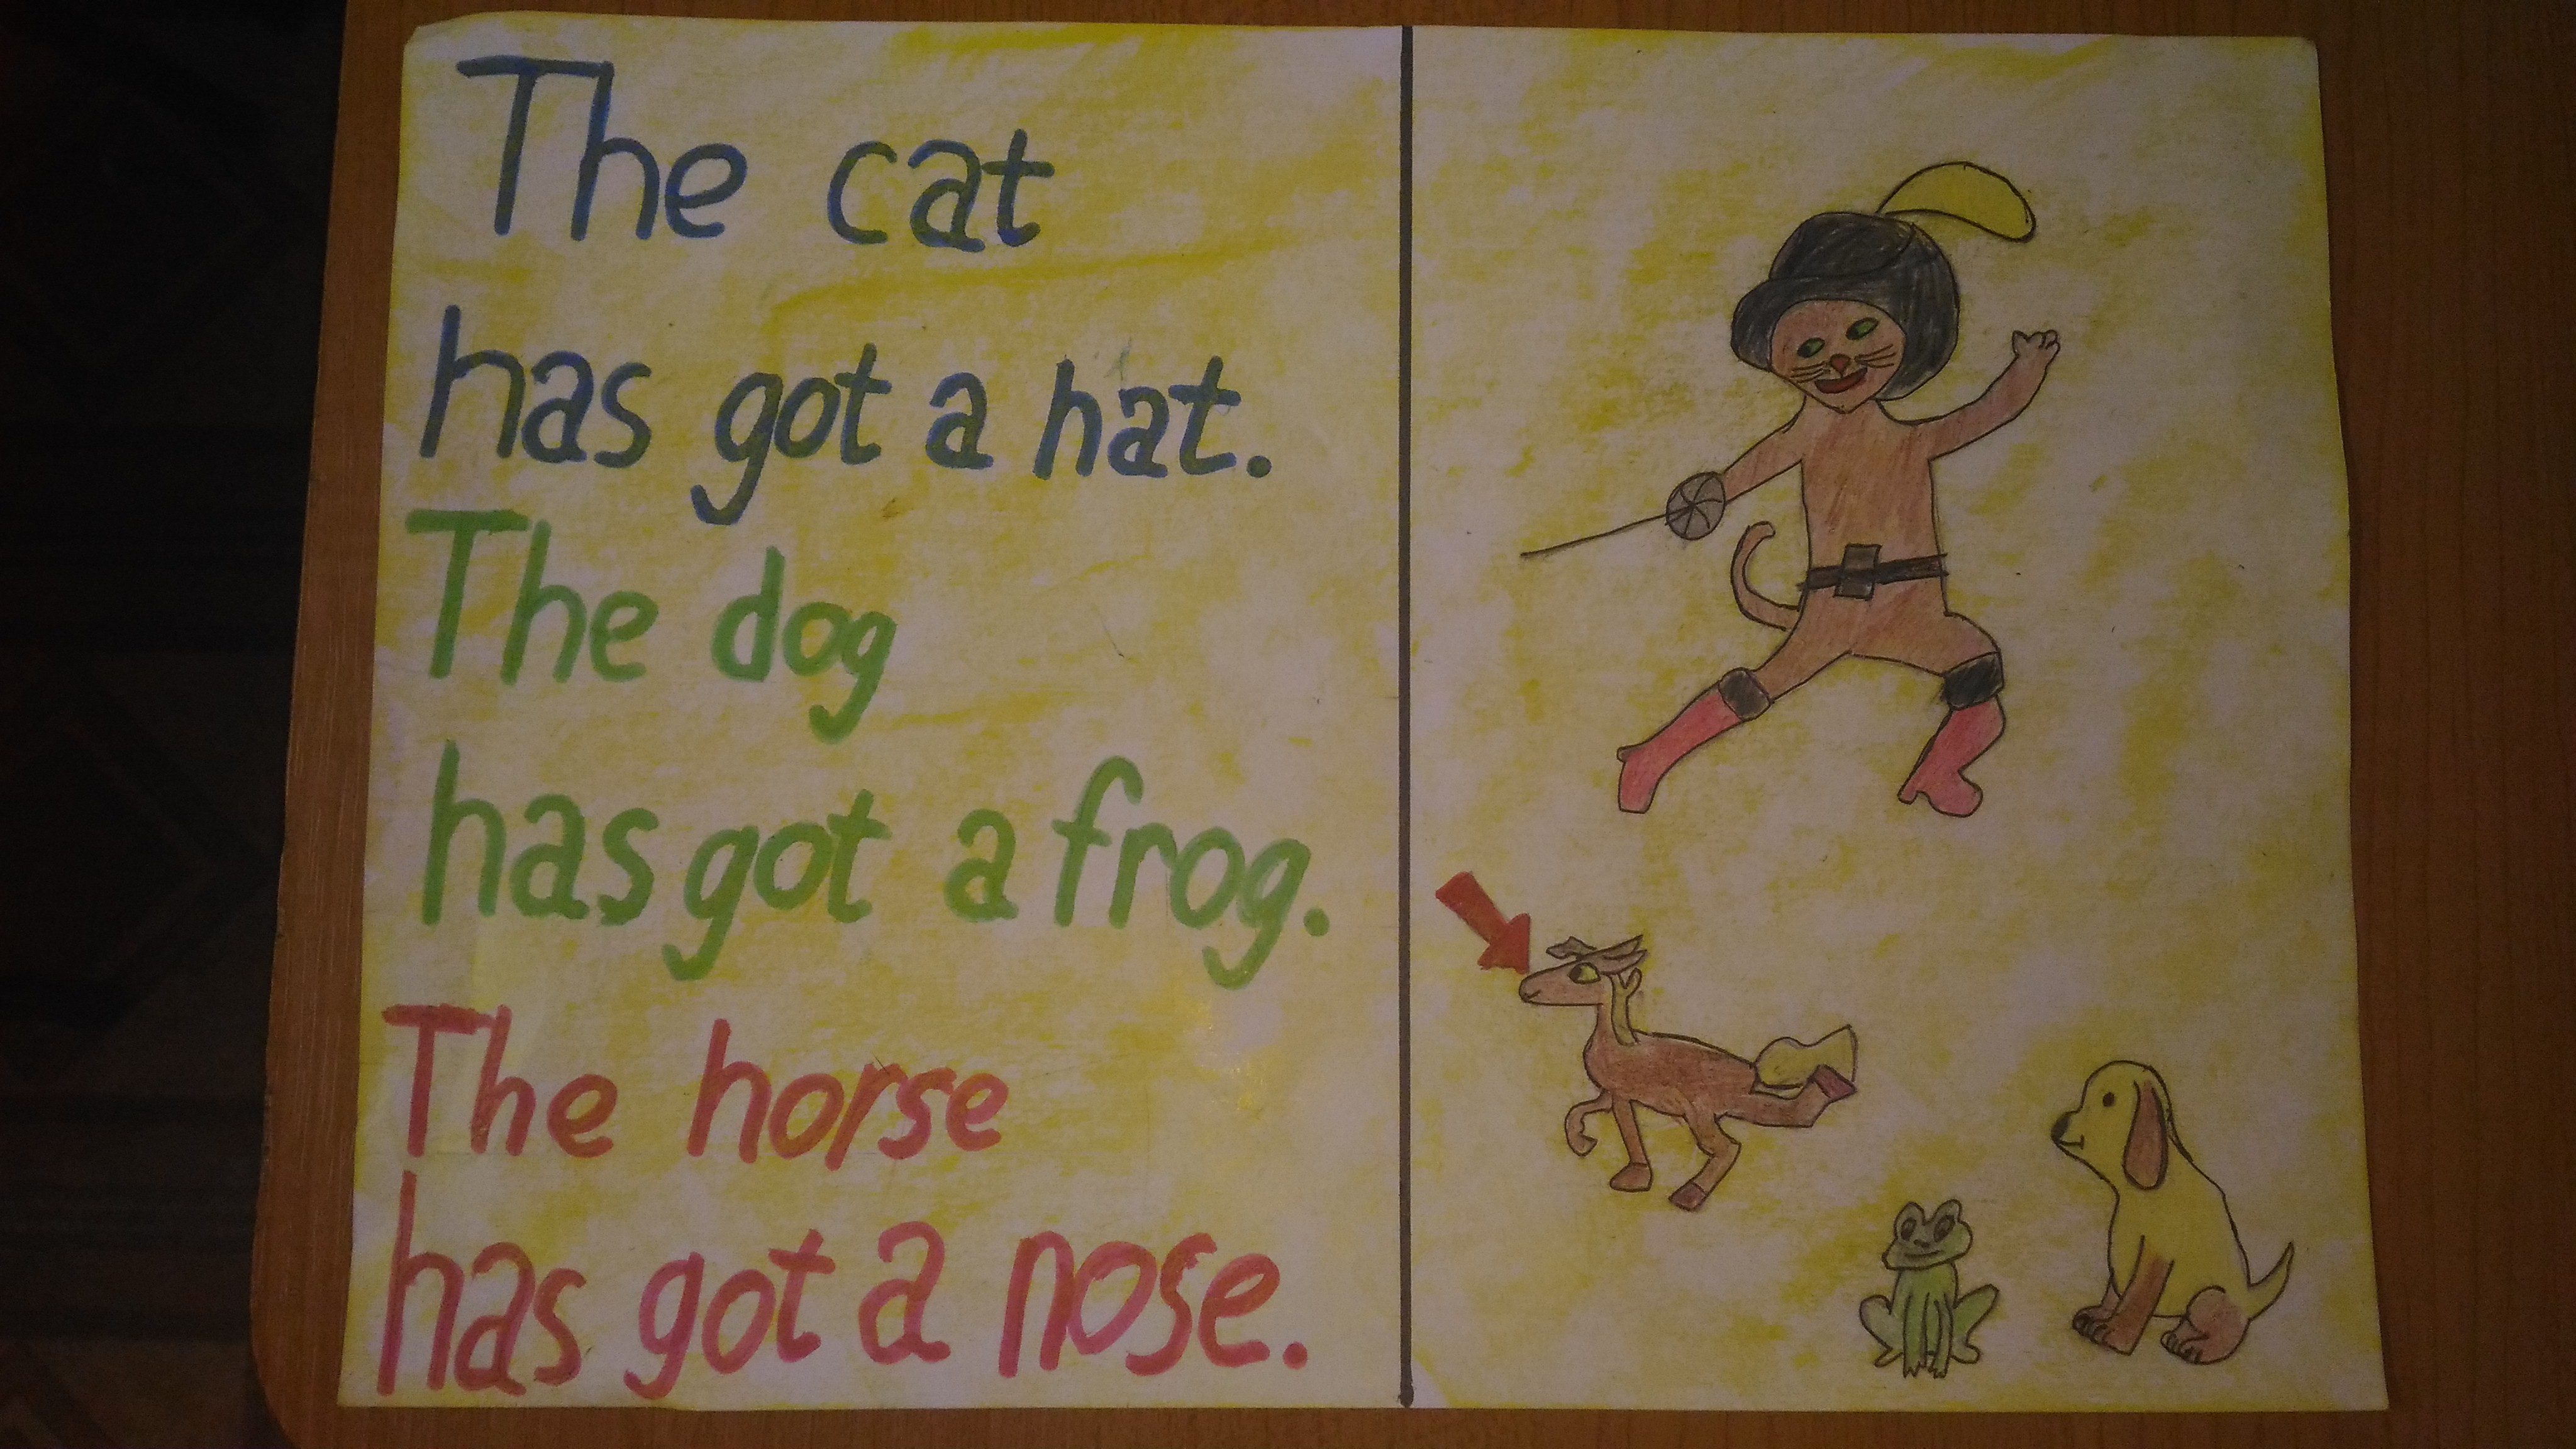 The cat
has got a hat.
The dog
has got a frog.
The horse
has got a nose.